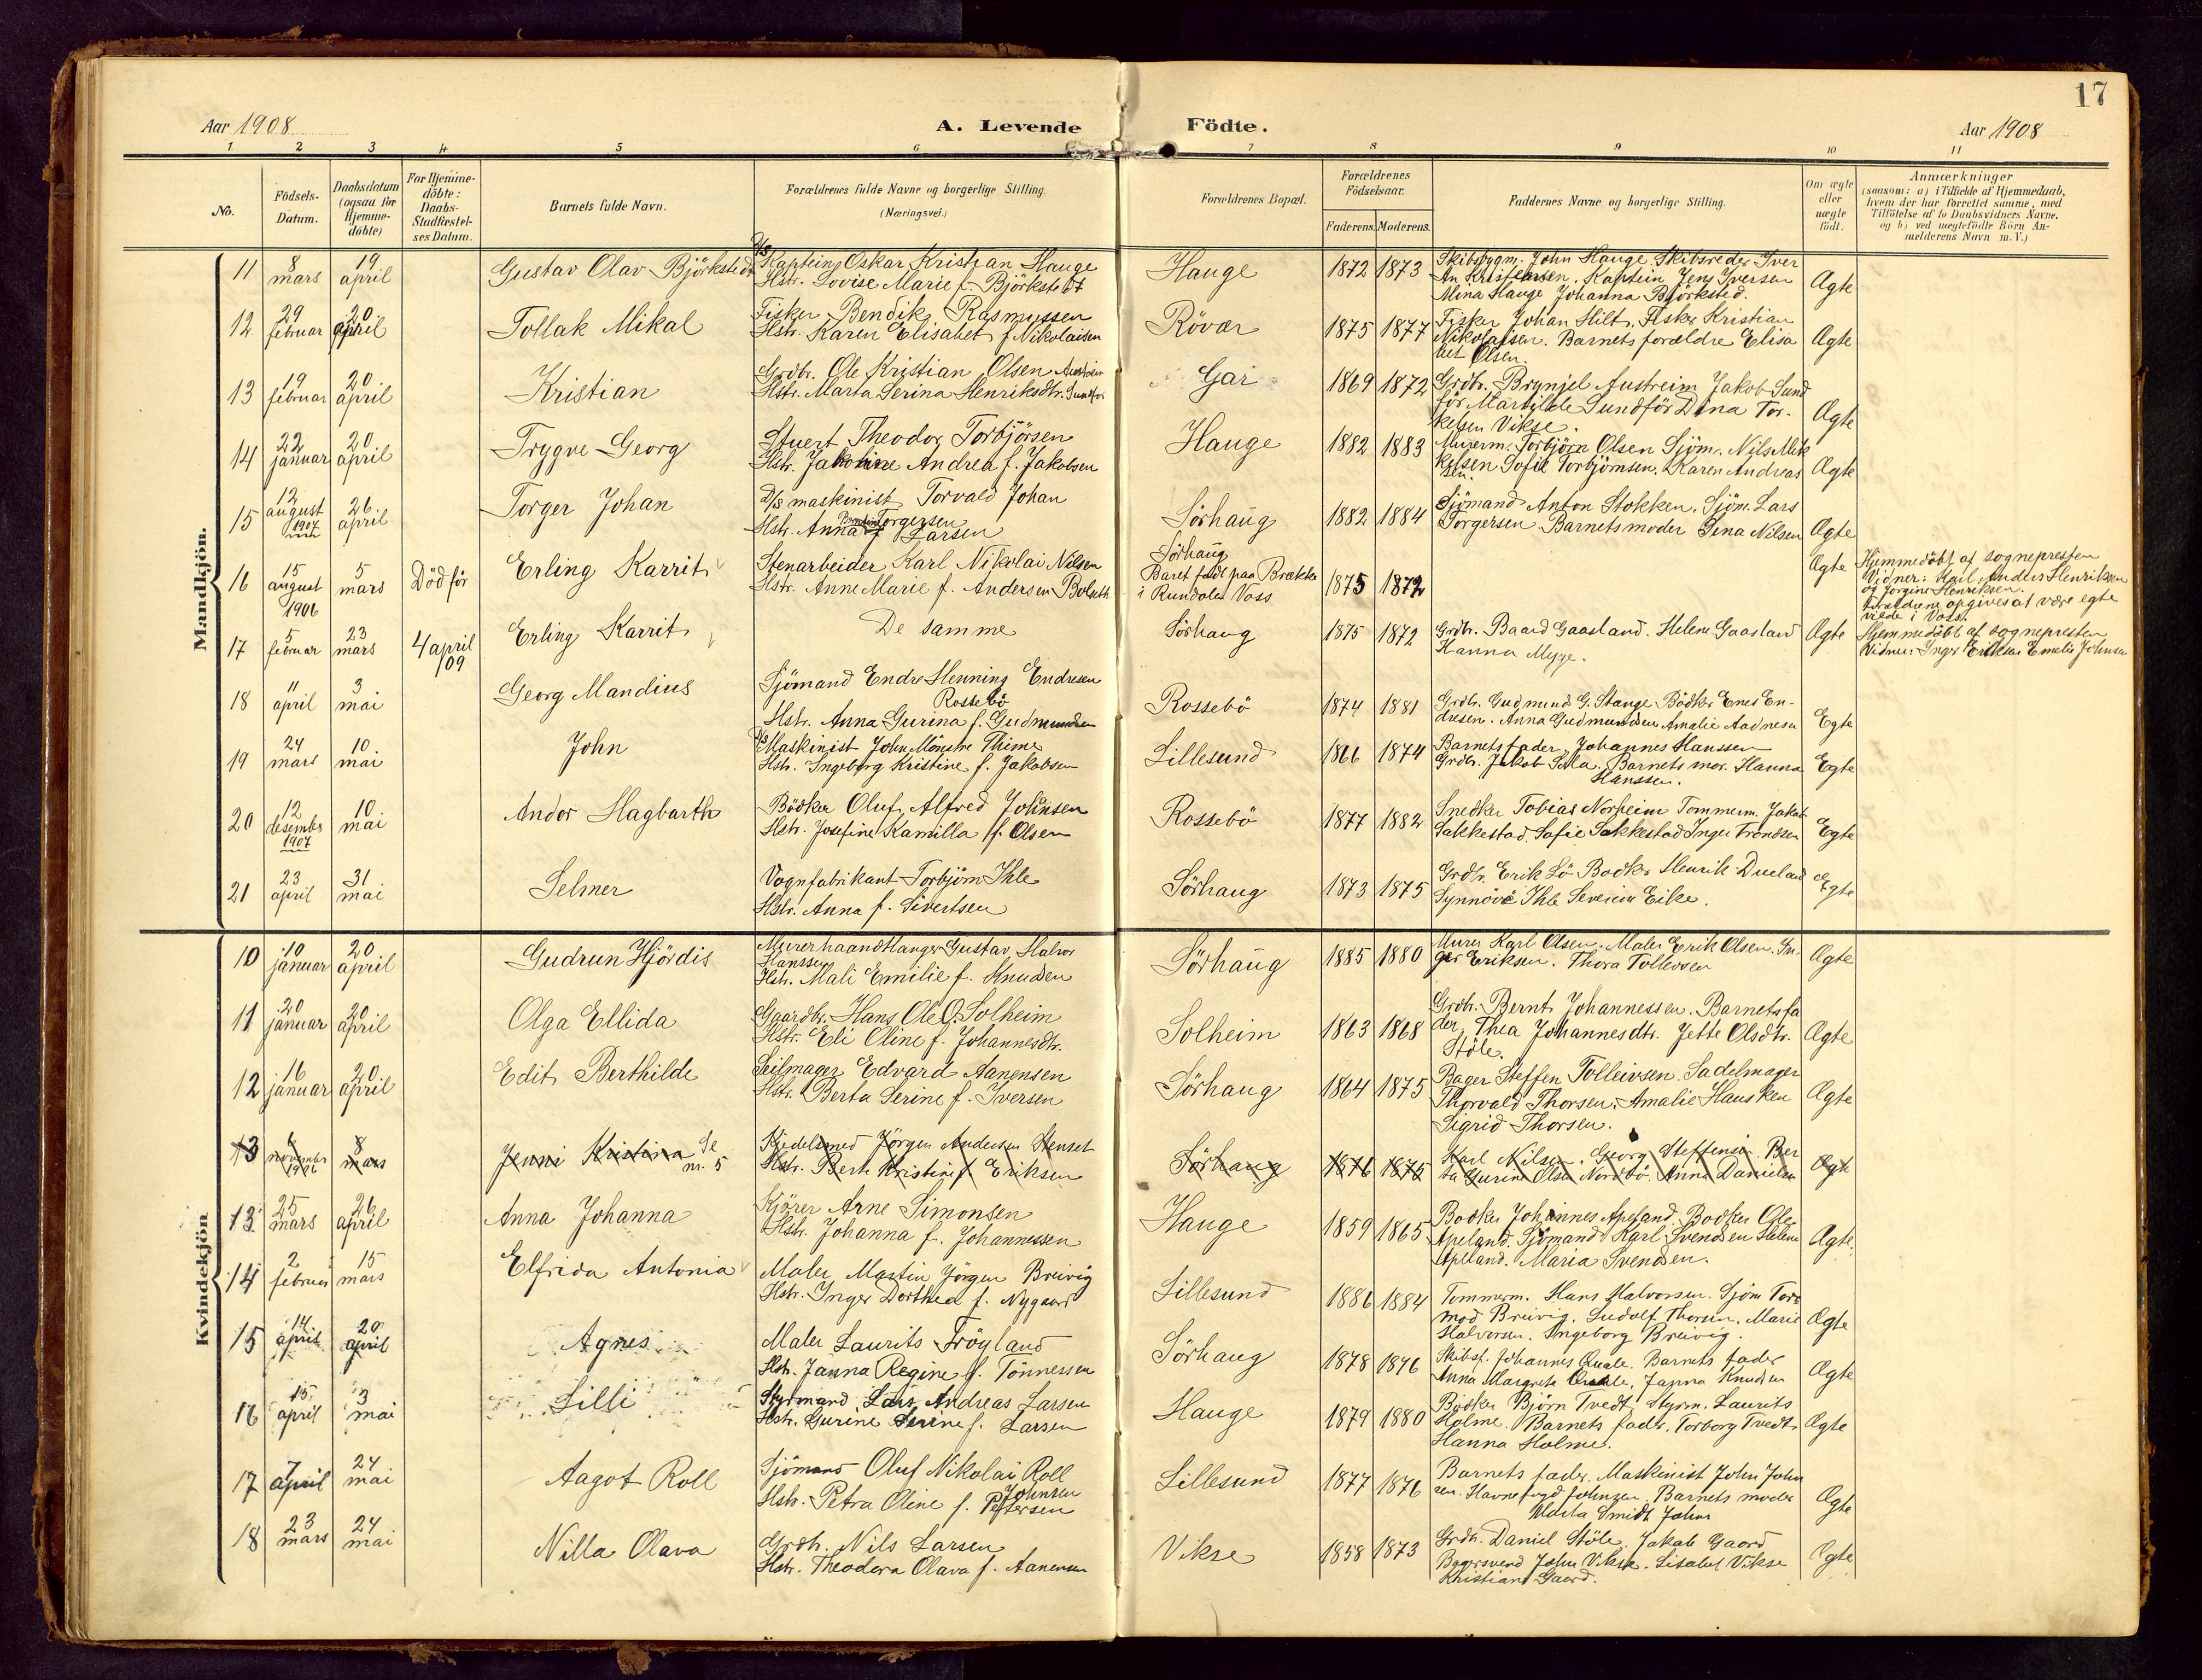 17
Aar 1908
A. Levende Födte.
Aar 1908
1 2 3 4 5 6 7 8 9 10 11
No.
Födsels-Datum.
Daabsdatum (ogsaa for Hjemme-döbte)
For Hjemme-döbte: Daabs-Stadfæstel-ses Datum.
Barnets fulde Navn.
Forældrenes fulde Navne og borgerlige Stilling.
(Næringsvei.)
Forældrenes Bopæl.
Forældrenes Födselsaar.
Faderens. Moderens.
Faddernes Navne og borgerlige Stilling.
Om ægte eller uægte födt.
Anmærkninger
(saasom: a) i Tilfælde af Hjemmedaab,
hvem der har forrettet samme, med
Tilföielse af to Daabsvidners Navne,
og b) ved uægtefödte Börn An-
melderens Navn m. V.)
Mandkjön.
11 8 mars 19 april Gustav Olav Björkstedt
D/S Kaptein Oskar Kristian Hauge
Hstr. Lovise Marie f. Björkstedt
Hauge 1872 1873
Skibsbygm. John Hauge Skibsreder Iver
An Kristensen. Kaptein Jens Iversen
Mina Hauge Johanna Björksted.
Ægte
12 29 februar 20 april Tollak Mikal
Fisker Bendik Rasmussen
Hstr. Karen Elisabet f. Nikolaisen
Rövær 1875 1877
Fisker Johan Hilt. Fisker Kristian
Nikolaisen. Barnets forældre Elisa
bet Olsen.
Ægte
13 19 februar 20 april Kristian
Grdbr. Ole Kristian Olsen
Hstr. Marta Serina Henriksdtr. Sundför
Gar 1869 1872
Grdbr. Brynjel Austreim Jakob Sund
för Martilde Sundför Dina Tor-
kelsen Vikse.
Ægte
14 22 januar 20 april Trygve Georg
Stuert Theodor Torbjörsen
Hstr. Jakobine Andrea f. Jakobsen
Hauge 1882 1883
Murerm. Torbjörn Olsen Sjöm. Nils Mik
kelsen Sofie Torbjörnsen. Karen Andreas
sen.
Ægte
15 12 august 1907 26 april Torger Johan
D/S maskinist Torvald Johan
Torgersen
Hstr. Anna f. Larsen
Sörhaug 1882 1884
Sjömand Anton Stokken. Sjöm. Lars
Torgersen Barnets moder Sina Nilsen
Ægte
16 15 august 1906 5 mars Död för Erling Karrit
Stenarbeider Karl Nikolai Nilsen
Hstr. Anne Marie f. Andersen
Sörhaug
Baret födt paa Brække
i Rundalen Voss
1875 1872
Ægte
Hjemmedöbt af sognepresten
Vidner: Karl Anders Henriksen
og Jorgine Henriksen.
Forældrene opgives at være egte
viede i Voss.
17 5 februar 23 mars 4 april /09 Erling Karrit
De samme
Sörhaug 1875 1872
Grdbr. Baard Gaasland. Helene Gaasland
Hanna Myge.
Ægte
Hjemmedöbt af sognepresten
Vidner: Inger Eriksen Emelie Johnsen
18 11 april 3 mai Georg Mandius
Sjömand Endre Henning Endresen
Rossebö
Hstr. Anna Gurina f. Gudmundsen
Rossebö 1874 1881
Grdbr. Gudmund G. Stange. Bödker Enes En-
dresen. Anna Gudmundsen Amalie Aadnesen
Egte
19 24 mars 10 mai John
D/S Maskinist John Mönstre Thime
Hstr. Ingeborg Kristine f. Jakobsen
Lillesund 1866 1874
Barnets fader. Johannes Hanssen
Grdbr. Jakob Sela. Barnets mor. Hanna
Hanssen.
Egte
20 12 desember 1907 10 mai Andor Hagbarth
Bödker Oluf Alfred Johnsen
Hstr. Josefine Kamilla f. Olsen
Rossebö 1877 1882
Snedker Tobias Norheim Tommerm. Jakob
Sakkestad. Sofie Sakkestad Inger Trondsen
Egte
21 23 april 31 mai Selmer
Vognfabrikant Torbjörn Ihle
Hstr. Anna f. Sivertsen
Sörhaug 1873 1875
Grdbr. Erik Lö Bodker Henrik Dueland
Synnöve Ihle Severine Eike.
Egte
Kvindekjön
10 10 januar 20 april Gudrun Hjördis
Murerhaandtlanger Gustav Halvor
Hanssen
Hstr. Mali Emilie f. Knudsen
Sörhaug 1885 1880
Murer Karl Olsen. Maler Erik Olsen. In-
ger Eriksen. Thora Tollevsen
Ægte
11 20 januar 20 april Olga Ellida
Gaardbr. Hans Ole O. Solheim
Hstr. Eli Oline f. Johannesdtr.
Solheim 1863 1868
Grdbr. Bernt Johannessen. Barnets fa
der, Thea Johannesdtr. Jette Olsdtr.
Stöle.
Ægte
12 16 januar 20 april Edit Berthilde
Seilmager Edvard Aanensen
Hstr. Berta Serine f. Iversen
Sörhaug 1864 1875
Bager Steffen Tolleivsen. Sadelmager
Thorvald Thorsen. Amalie Hausken
Sigrid Thorsen.
Ægte
13 6 november 1906 8 mars Jenni Kristina Se nr. 5
Kjedelsmed Jörgen Andersen Stenset
Hstr. Berte Kristine f. Eriksen
Sörhaug 1876 1875
Karl Nilsen. Georg Steffensen. Ber
ta Gurine Olsen Nordbö. Anna Danielsen
Ægte
13 25 mars 26 april Anna Johanna
Kjörer Arne Simonsen
Hstr. Johanna f. Johannessen
Hauge 1859 1865
Bodker Johannes Apeland. Bodker Ole
Apeland. Sjömand Karl Svendsen Helene
Apeland. Maria Svendsen.
Ægte.
14 2 februar 15 mars Elfrida Antonia
Maler Martin Jörgen Breivig
Hstr. Inger Dorthea f. Nygaard
Lillesund 1886 1884
Tommerm. Hans Halvorsen. Sjöm Tor
mod Breivig. Ludolf Thorsen. Marie
Halvorsen. Ingeborg Breivig.
Ægte
15 14 april 20 april Agnes
Maler Laurits Fröyland
Hstr. Janna Regine f. Tönnessen
Sörhaug 1878 1876
Skibsf. Johannes Quale. Barnets fader
Anna Margrete Quale. Janna Knudsen
Ægte
16 15 april 3 mai Lilli
Styrmand Lars Andreas Larsen
Hstr. Gurine Serine f. Larsen
Hauge 1879 1880
Bodker Björn Tvedt. Styrm. Laurits
Holme. Barnets fader. Torborg Tvedt
Hanna Holme.
Ægte
17 7 april 24 mai Aagot Roll
Sjömand Oluf Nikolai Roll
Johnsen
Hstr. Petra Oline f. Pettersen
Lillesund 1877 1876
Barnets fader. Maskinist John John
sen. Havnefogd Johnsen. Barnets moder
Smidt
Ægte
18 23 mars 24 mai Nilla Olava
Grdbr. Nils Larsen
Hstr. Theodora Olava f. Aanensen
Vikse 1858 1873
Grdbr. Daniel Stöle. Jakob Gaard
Bagersvend John Vikse. Lisabet Vikse
Kristiane Gaard.
Ægte